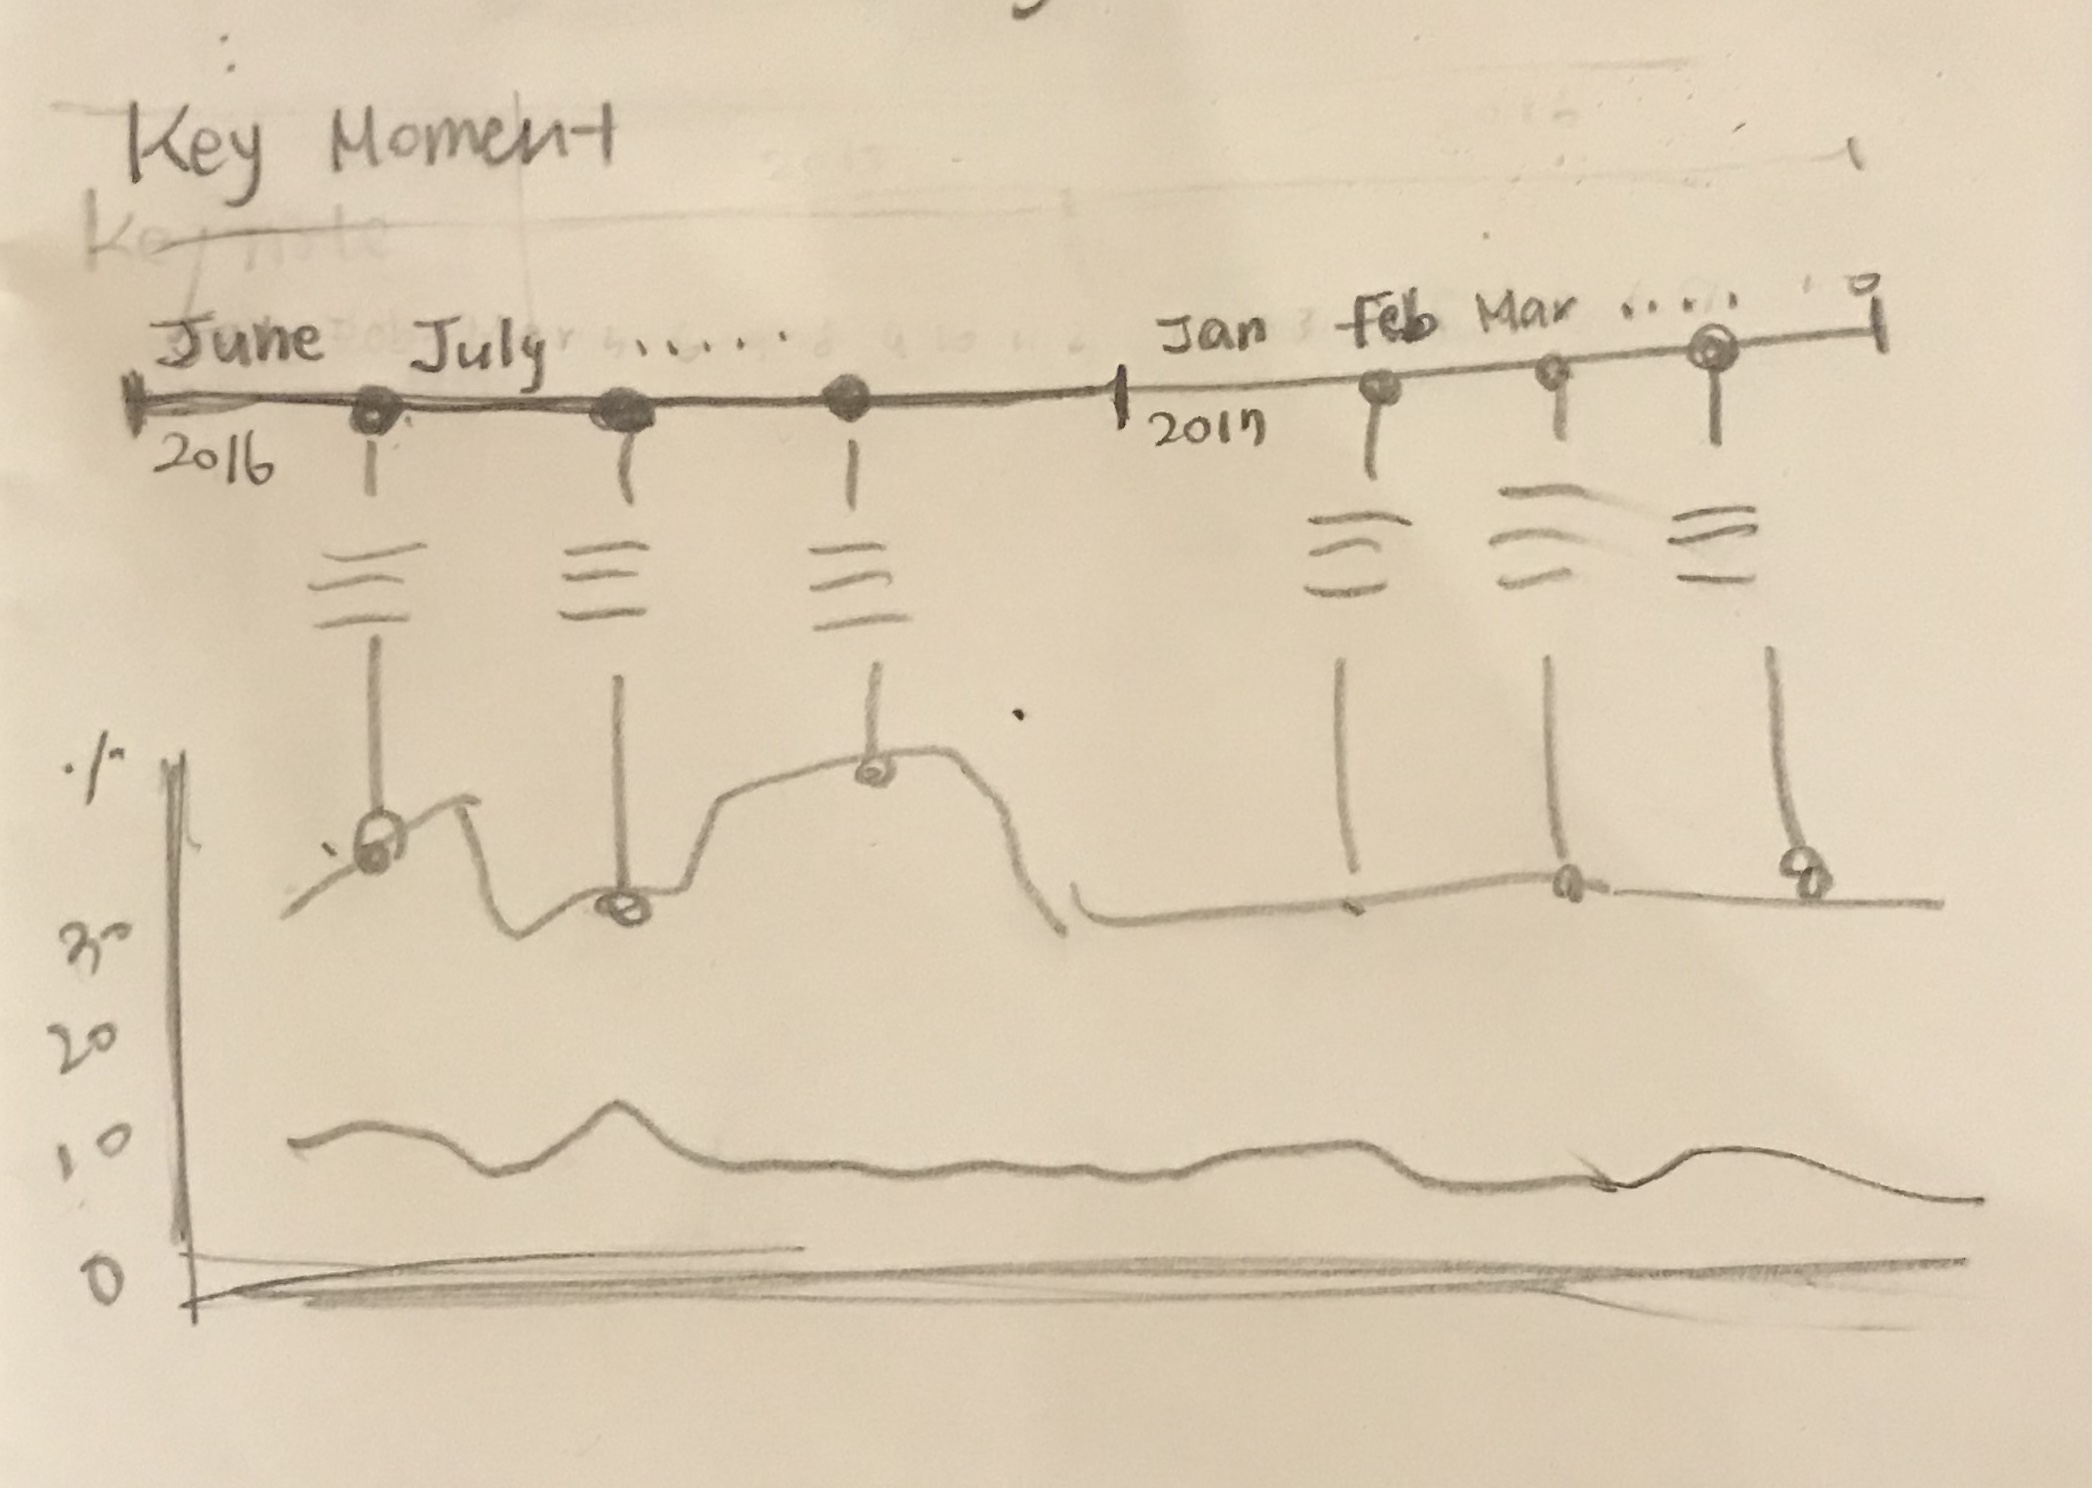 Key Moment
Key note
June July ...... Jan Feb Mar ....
2016 2017
%
30
20
10
0